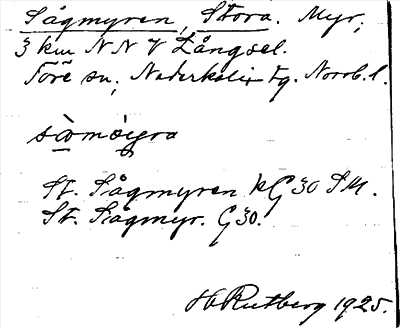 Sågmyren, Stora. Myr,
3 km NNV Långsel.
Töre sn, Nederkalix tg. Norrb. l.
St. Sågmyren kG 30 SM.
St. Sågmyr. G 30.
H Rutberg 1925.